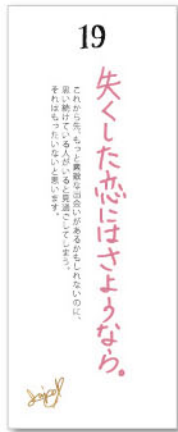 19
失くした恋にはさようなら。
これから先、もっと素敵な出会いがあるかもしれないのに、
思い続けている人がいると見過ごしてしまう。
それはもったいないと思います。